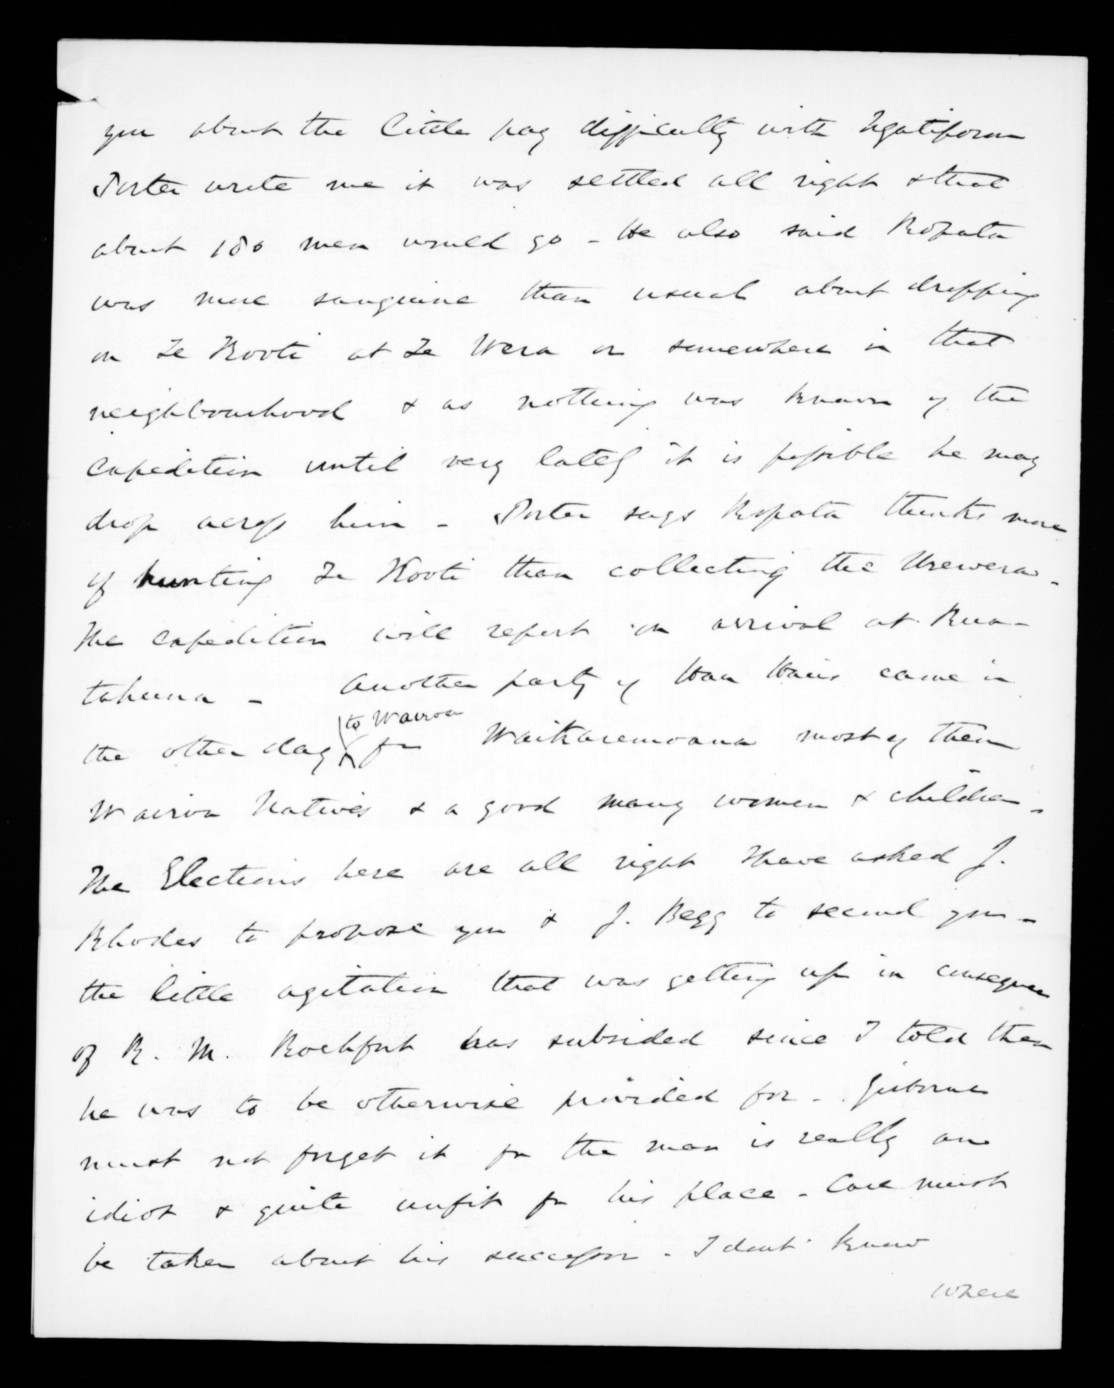 you about the little pay difficulty with Ngatiporou
Porter wrote me it was settled all right & that
about 180 men would go - He also said Ropata
was more sanguine than usual about dropping
on Te Kooti at Te Wera or somewhere in that
neighbourhood & as nothing was known of the
Expedition until very lately it is possible he may
drop across him - Porter says Ropata thinks more
of hunting Te Kooti than collecting the Urewera -
The expedition will report on arrival at Rua-
tahuna - Another party of Hau Haus came in
the other day to Wairoa fm Waikaremoana most of them
Wairoa Natives & a good many women & children -
The Elections here are all right I have asked J.
Rhodes to propose you & J. Begg to second you -
the little agitation that was getting up in consequence
of R. M. Rochfort has subsided since I told them
he was to be otherwise provided for - Gisborne
must not forget it for the man is really an
idiot & quite unfit for his place - Care must
be taken about his successor - I dont know
where